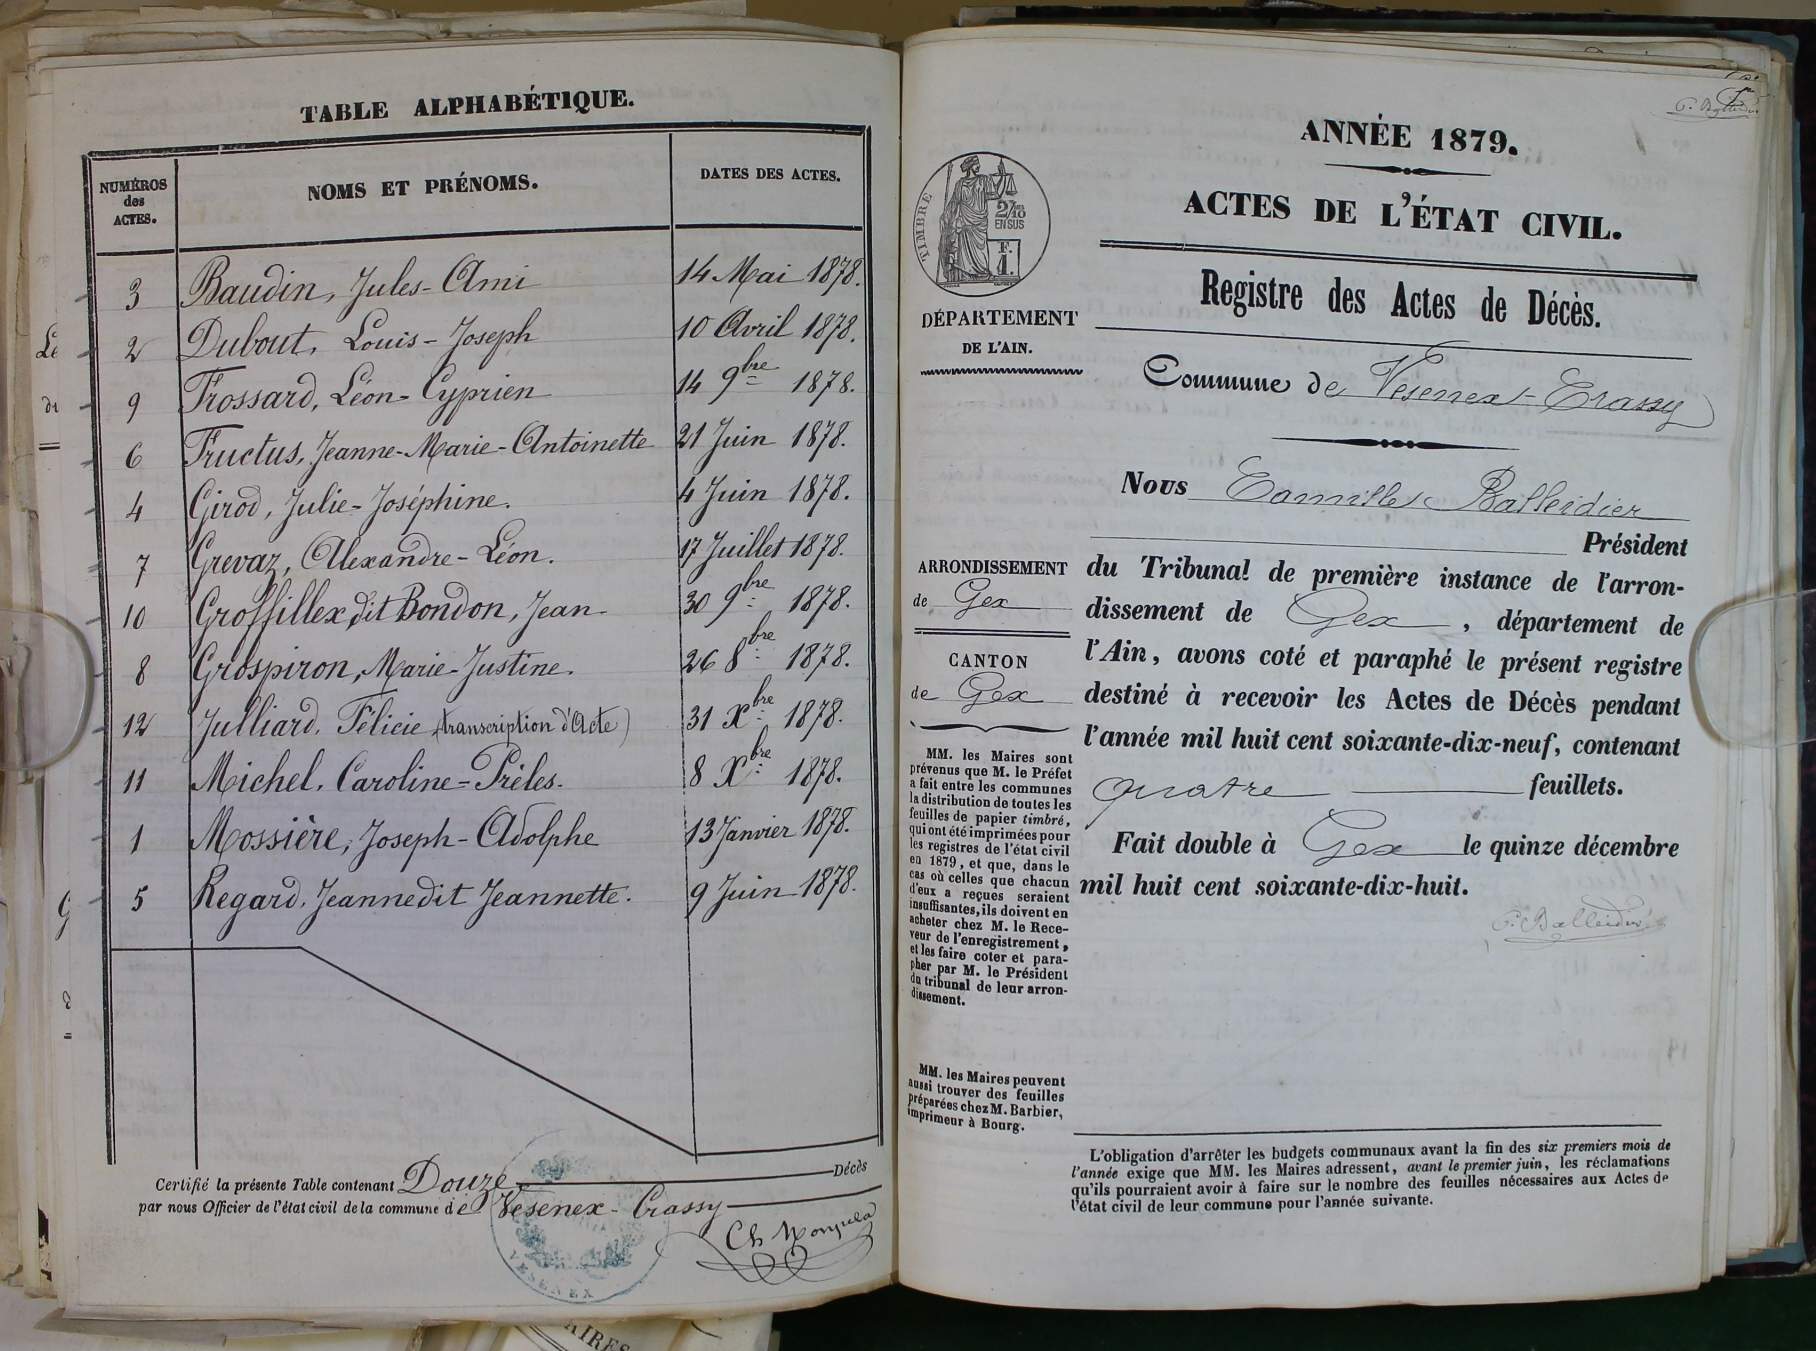 TABLE ALPHABÉTIQUE.
NUMÉROS des ACTES. NOMS ET PRÉNOMS. DATES DES ACTES.
3 Baudin, Jules-Ami 14 Mai 1878.
2 Dubout, Louis-Joseph 10 Avril 1878.
9 Frossard, Léon-Cyprien 14 9bre 1878.
6 Fructus, Jeanne-Marie-Antoinette 21 Juin 1878.
4 Girod, Julie-Joséphine. 4 Juin 1878.
7 Grevaz, Alexandre-Léon. 17 Juillet 1878.
10 Groffillex dit Bondon, Jean 30 9bre 1878.
8 Grospiron, Marie-Justine. 26 8bre 1878.
12 Julliard, Félicie (transcription d'Acte) 31 Xbre 1878.
11 Michel, Caroline-Prèles. 8 Xbre 1878.
1 Mossière, Joseph-Adolphe 13 Janvier 1878.
5 Regard, Jeanne dit Jeannette. 9 Juin 1878.
Certifié la présente Table contenant Douze Décès
par nous Officier de l'état civil de la commune de Vesenex-Crassy
VESENEX
ANNÉE 1879.
ACTES DE L'ÉTAT CIVIL.
TIMBRE
2/10 EN SUS
F.
1.
DÉPARTEMENT
DE L'AIN.
Registre des Actes de Décès.
Commune de Vesenex-Crassy
Nous Camille Balleidier
Président
du Tribunal de première instance de l'arron-
dissement de Gex, département de
l'Ain, avons coté et paraphé le présent registre
destiné à recevoir les Actes de Décès pendant
l'année mil huit cent soixante-dix-neuf, contenant
quatre feuillets.
Fait double à Gex le quinze décembre
mil huit cent soixante-dix-huit.
C. Balleidier
ARRONDISSEMENT
de Gex
CANTON
de Gex
MM. les Maires sont
prévenus que M. le Préfet
a fait entre les communes
la distribution de toutes les
feuilles de papier timbré,
qui ont été imprimées pour
les registres de l'état civil
en 1879, et que, dans le
cas où celles que chacun
d'eux a reçues seraient
insuffisantes, ils doivent en
acheter chez M. le Rece-
veur de l'enregistrement,
et les faire coter et para-
pher par M. le Président
du tribunal de leur arron-
dissement.
MM. les Maires peuvent
aussi trouver des feuilles
préparées chez M. Barbier,
imprimeur à Bourg.
L'obligation d'arrêter les budgets communaux avant la fin des six premiers mois de
l'année exige que MM. les Maires adressent, avant le premier juin, les réclamations
qu'ils pourraient avoir à faire sur le nombre des feuilles nécessaires aux Actes de
l'état civil de leur commune pour l'année suivante.